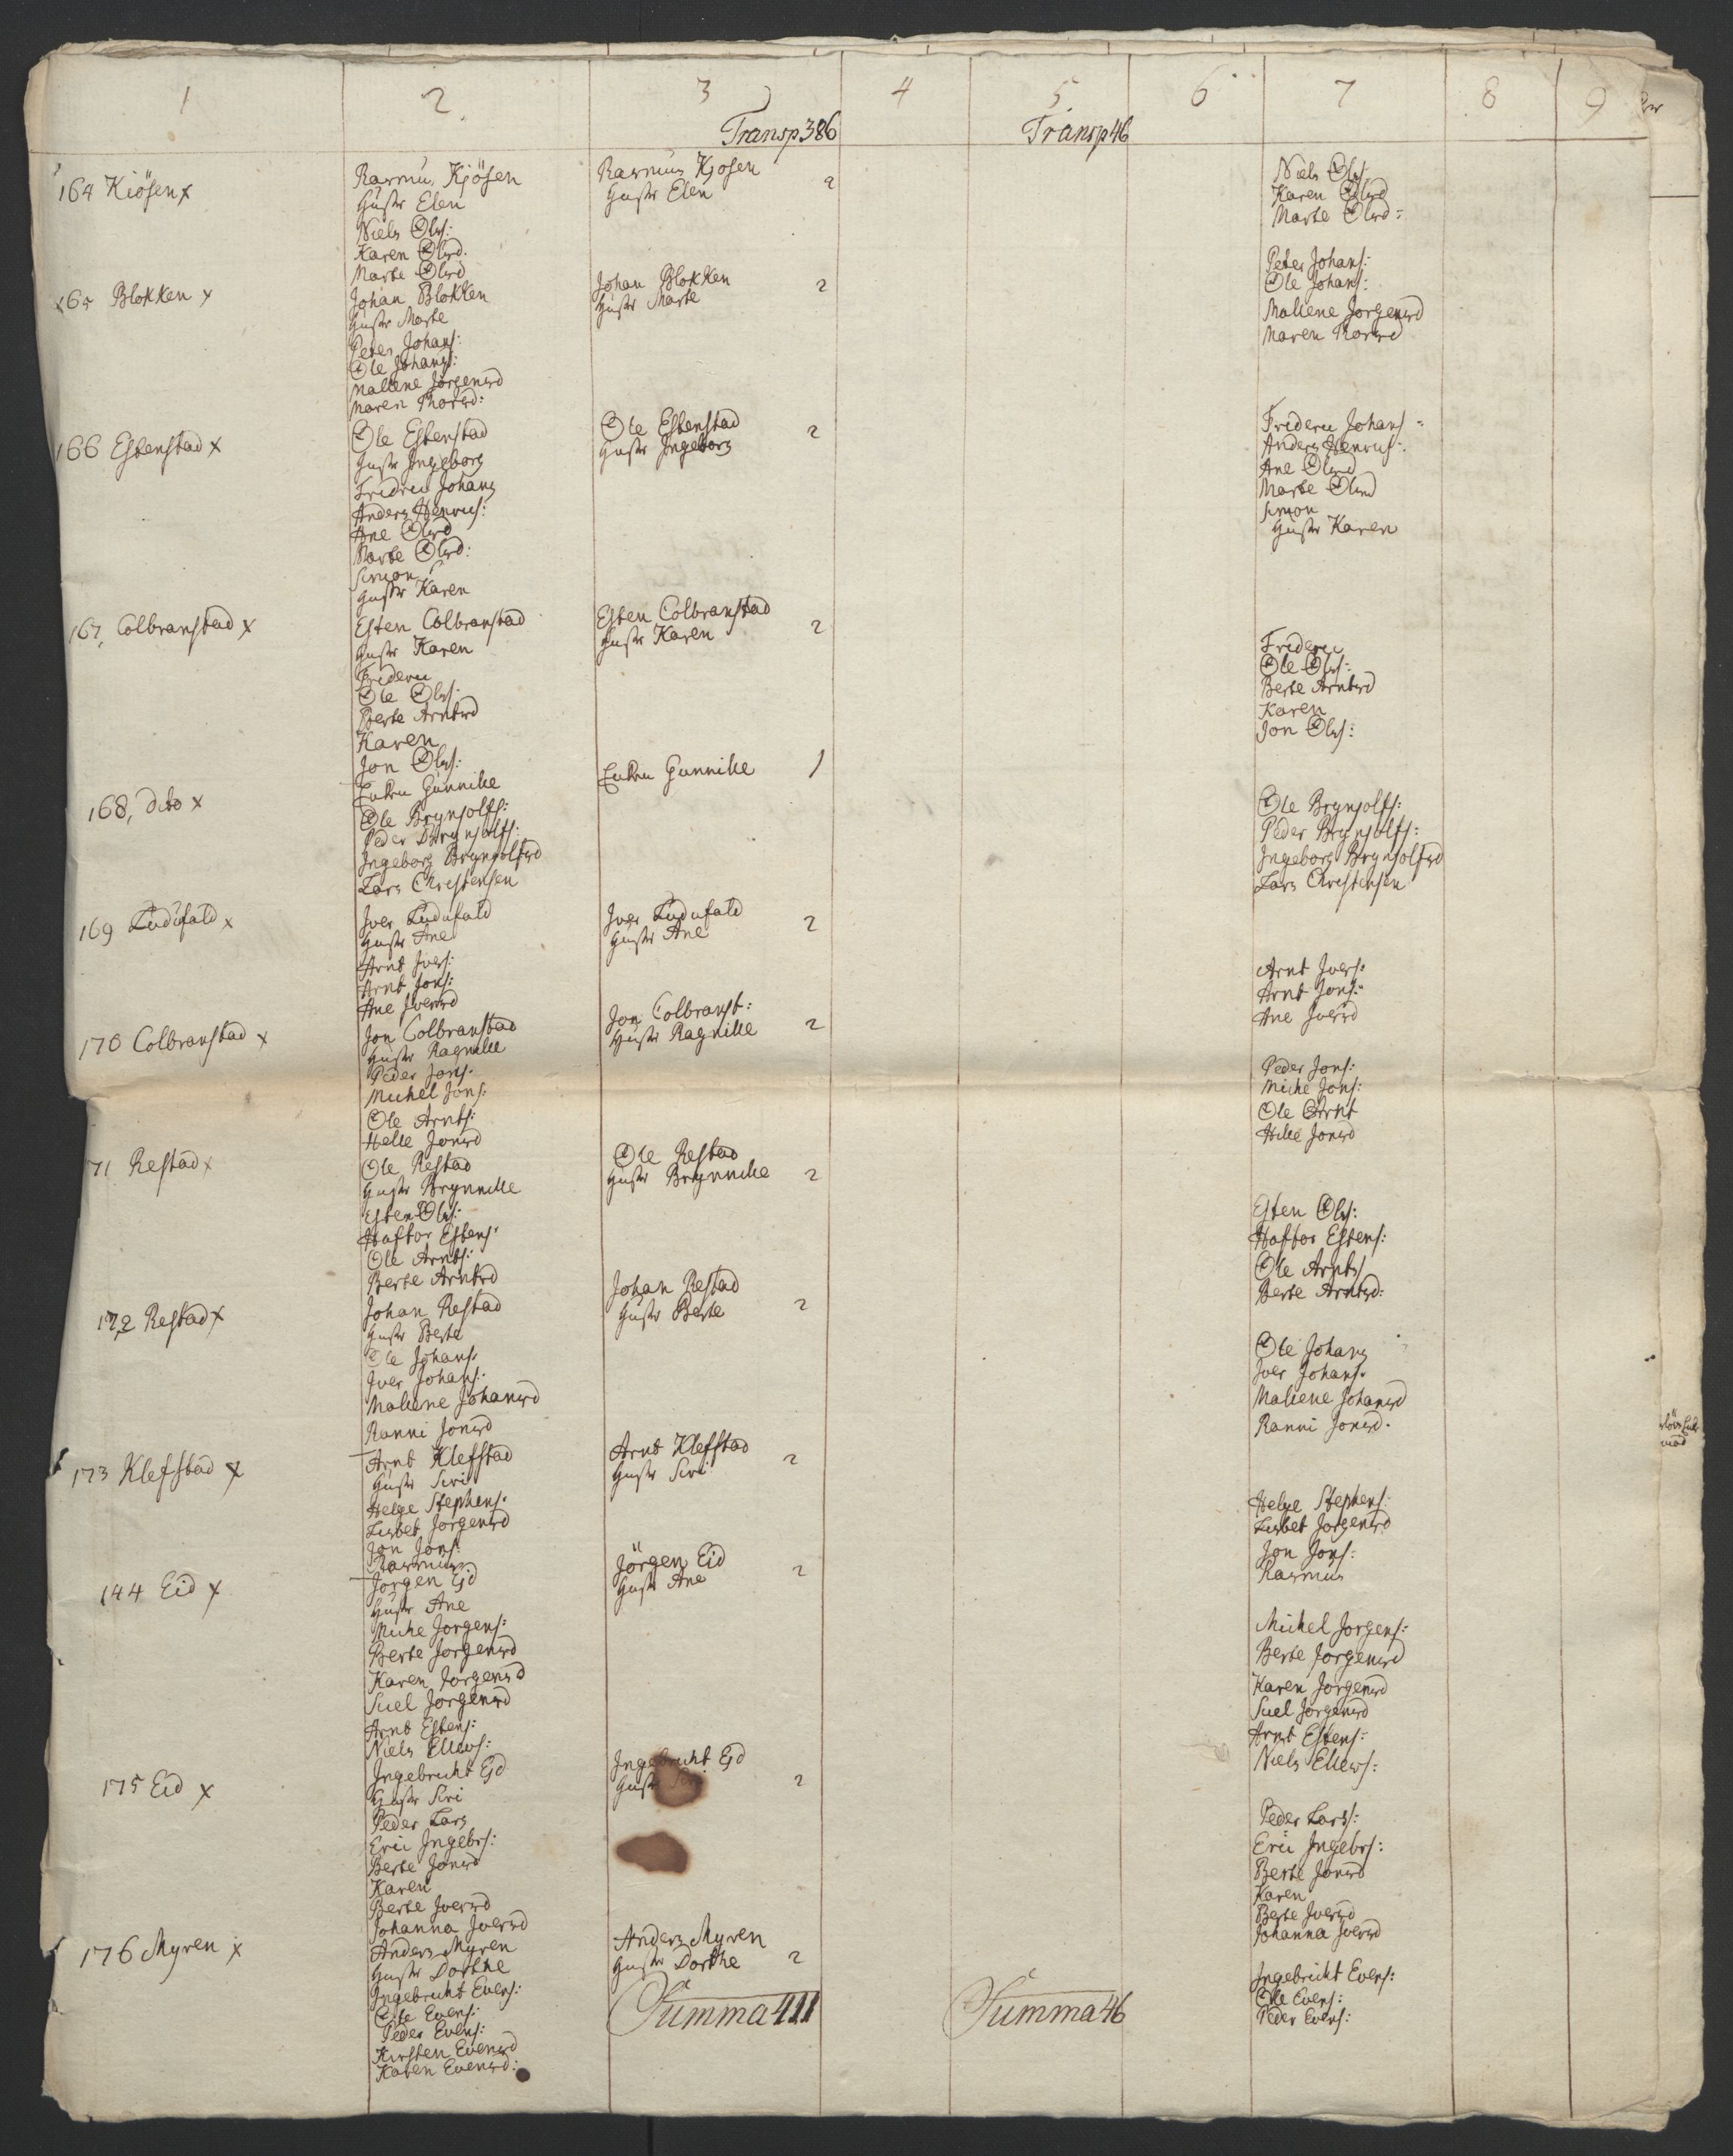 1 2 3 4 5 6 7 8 9
Transp 386 Transp 46
164 Kiösen x
Rasmus Kjösen
Hustr Elen
Niels Ols:
Karen Olsd.
Marte Olsd
Rasmus Kjosen
Hustr Elen 2
Niels Ols:
Karen Olsd
Marte Olsd:
165 Blokken x
Johan Blokken
Hustr Marte
Peter Johans:
Ole Johans:
Mallene Jörgensd
Maren Thorsd:
Johan Blokken
Hustr Marte 2
Peter Johans:
Ole Johans:
Mallene Jorgensd
Maren Thorsd
166 Estenstad x
Ole Estenstad
Hustr Ingeborg
Fridric Johans
Anders Henrics:
Ane Olsd
Marte Olsd:
Simon
Hustr Karen
Ole Estenstad
Hustr Ingeborg 2
Frideric Johans:
Anders Henrics:
Ane Olsd
Marte Olsd
Simon
Hustr Karen
167, Colbranstad x
Esten Colbranstad
Hustr Karen
Frideric
Ole Ols:
Berte Arntsd
Karen
Jon Ols:
Esten Colbranstad
Hustr Karen 2
Frideric
Ole Ols:
Berte Arntsd
Karen
Jon Ols:
168, dito x
Enken Gunnille
Ole Brynjolfs:
Peder Brynjolfs:
Ingeborg Brynjolfsd
Lars Christensen
Enken Gunnille 1
Ole Brynjolfs:
Peder Brynjolfs:
Ingeborg Brynjolfsd
Lars Christensen
169 Ludufald x
Iver Ludufald
Hustr Ane
Arnt Ivers:
Arnt Jons:
Ane Iversd
Iver Ludufald
Hustr Ane 2
Arnt Ivers:
Arnt Jons:
Ane Iversd
170 Colbranstad x
Jon Colbranstad
Hustr Ragnille
Peder Jons:
Michel Jons:
Ole Arnts:
Helle Jonsd
Jon Colbranst:
Hustr Ragnille 2
Peder Jons:
Miche Jons:
Ole Arnt
Hille Jonsd
71 Restad x
Ole Restad
Hustr Brynnille
Esten Ols:
Haftor Estens:
Ole Arnts:
Berte Arntsd
Ole Restad
Hustr Brynnille 2
Esten Ols:
Haftor Estens:
Ole Arnts/
Berte Arntsd:
172 Restad x
Johan Restad
Hustr Berte
Ole Johans:
Iver Johans:
Maliene Johansd
Ranni Jonsd
Johan Restad
Hustr Berte 2
Ole Johans
Iver Johans.
Maliene Johansd
Ranni Jonsd.
173 Klefstad x
Arnt Klefstad
Hustr Siri
Helge Stephens:
Lisbet Jorgensd
Jon Jons:
Rasmus
Arnt Klefstad
Hustr Siri 2
Helge Stephens:
Lisbet Jorgensd
Jon Jons:
Rasmus
144 Eid x
Jorgen Ejd
Hustr Ane
Miche Jorgens:
Berte Jorgensd
Karen Jorgensd
Siiel Jorgensd
Arnt Estens:
Niels Ellevs:
Jörgen Eid
Hustr Ane 2
Michel Jorgens:
Berte Jorgensd
Karen Jorgensd
Siiel Jorgensd
Arnt Estens:
Niels Ellevs:
175 Eid x
Ingebricht Ejd
Hustr Siri
Peder Lars
Eric Ingebrs:
Berte Jonsd
Karen
Berte Iversd
Johanna Iversd
Ingebricht Ejd
Hustr Siri 2
Peder Lars:
Eric Ingebrs:
Berte Jonsd
Karen
Berte Iversd
Johanna Iversd
176 Myren x
Anders Myren
Hustr Dorthe
Ingebricht Evens:
Ole Evens:
Peder Evens:
Kirsten Evensd
Karen Evensd:
Anders Myren
Hustr Dorthe 2
Ingebricht Evens:
Ole Evens:
Peder Evens:
Summa 411 Summa 46